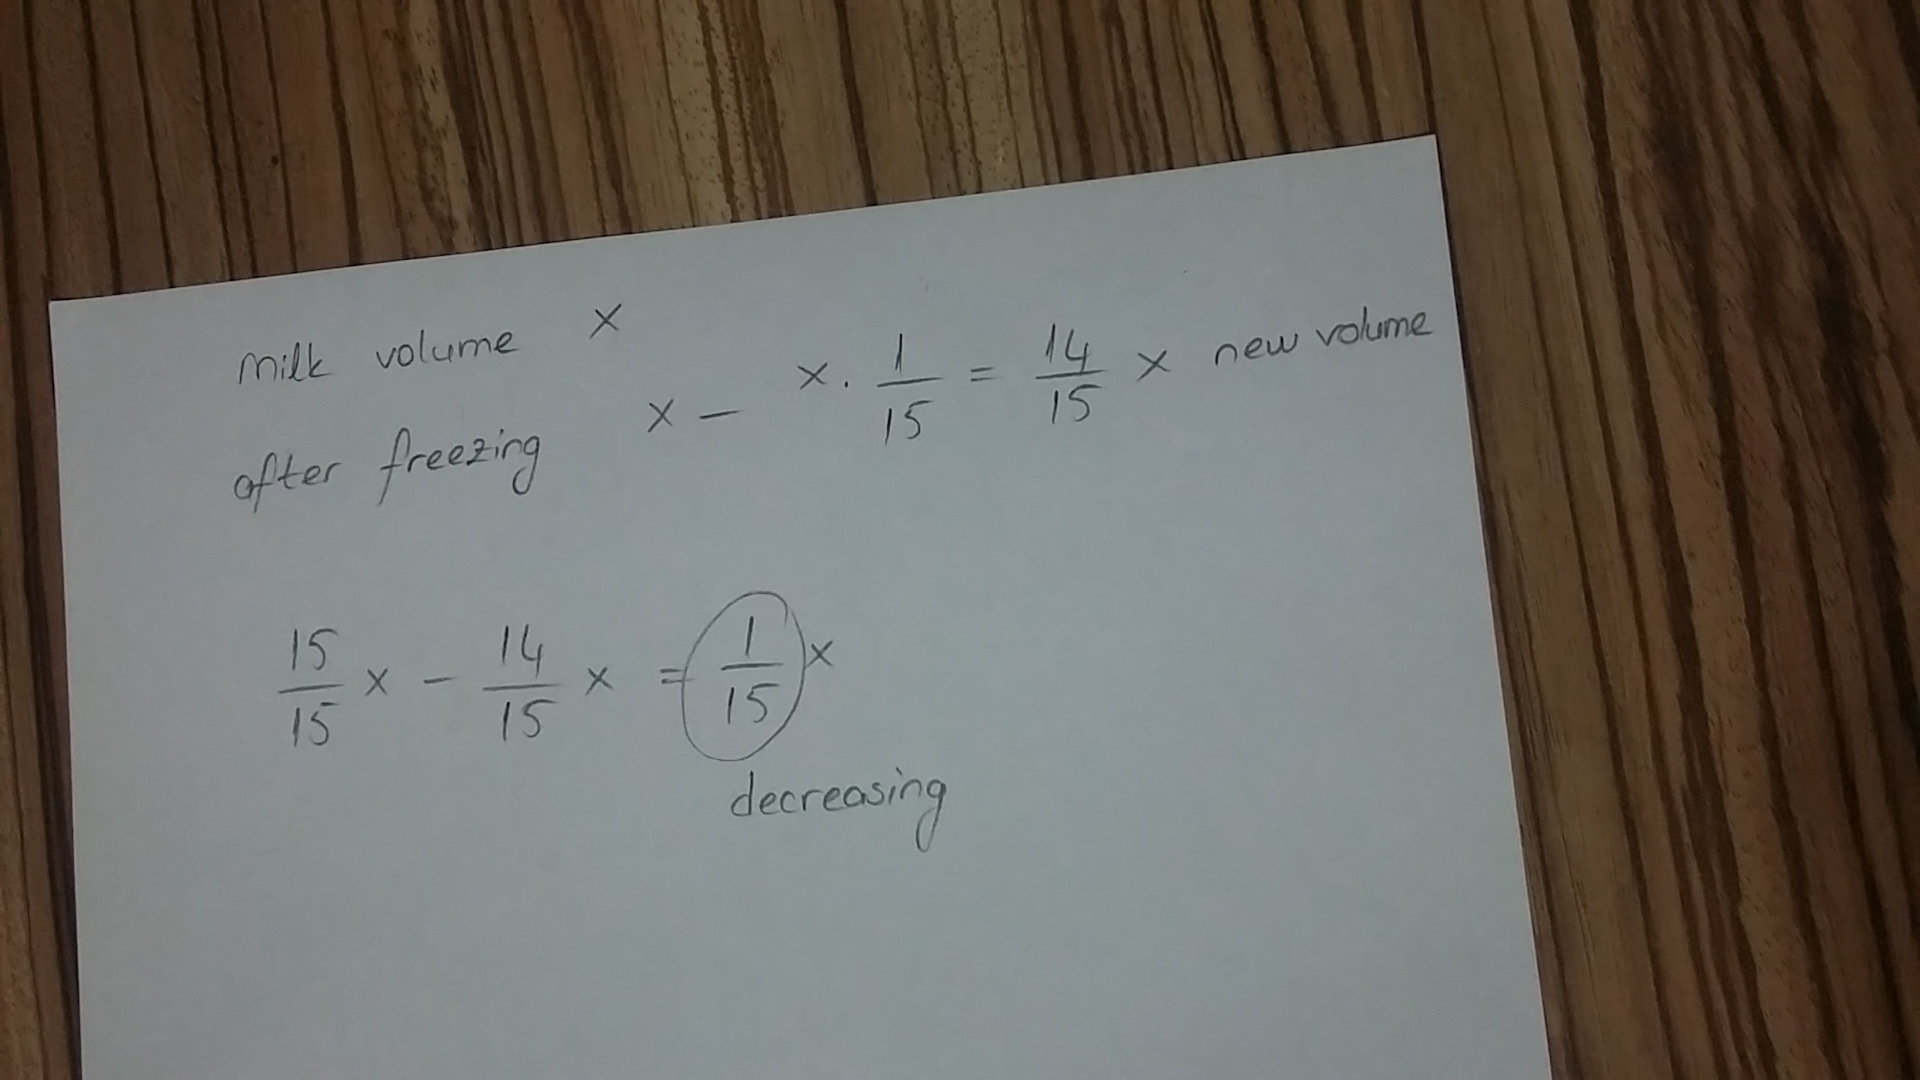 milk volume x
after freezing x - x . 1/15 = 14/15 x new volume
15/15 x - 14/15 x = 1/15 x
decreasing